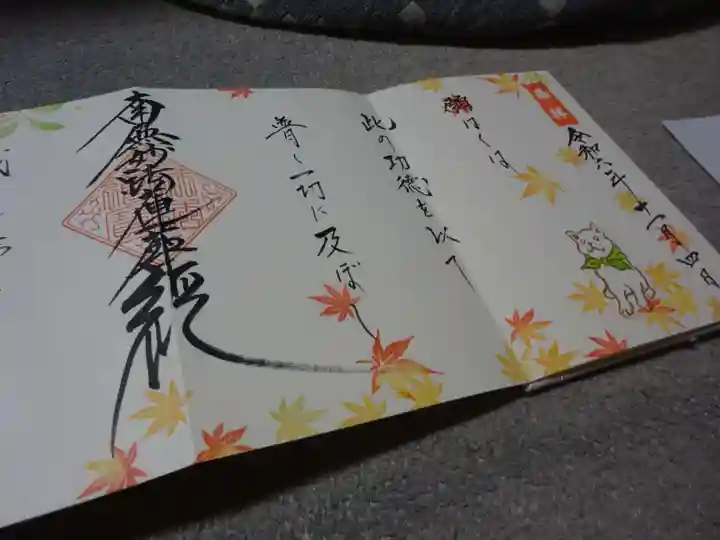 令和六年十一月四日
願はくは
此の功徳を以て
普く一切に及ぼし
南無妙法蓮華経